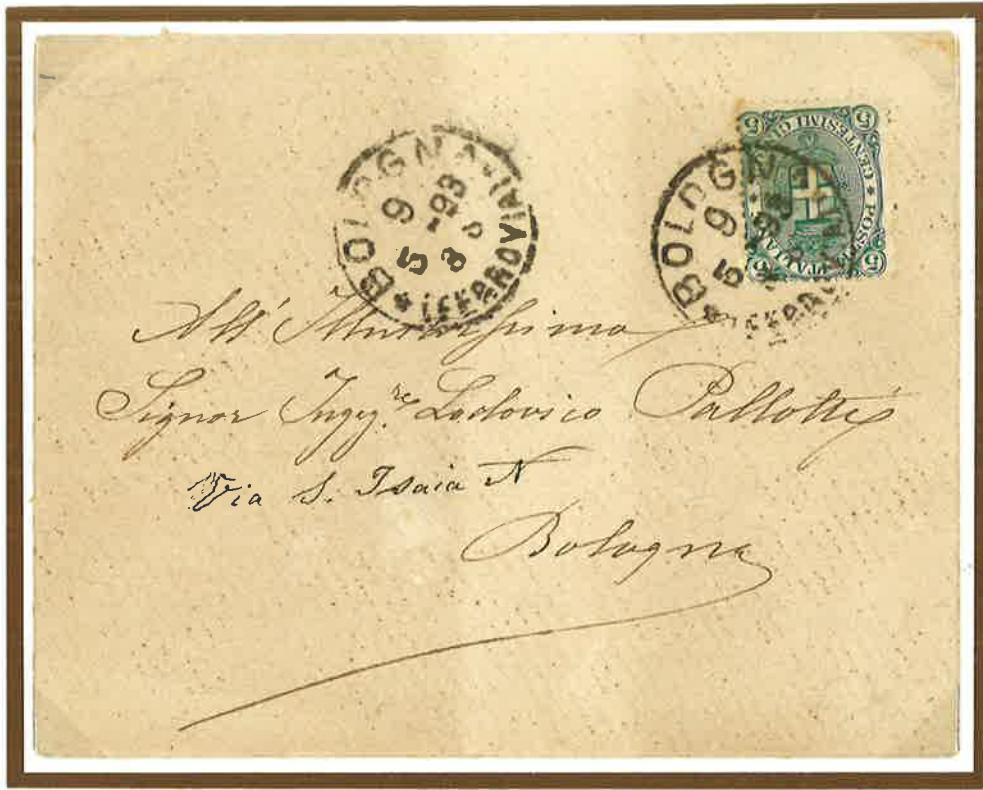 BOLOGNA
5 9 -93 8 S
* (FERROVIA)
BOLOGNA
5 9 93
* (FERROVIA)
5 CENTESIMI 5
POSTE ITALIANE
All' Illustrissimo
Signor Ingeg.re Lodovico Pallotti
Via S. Isaia N
Bologna